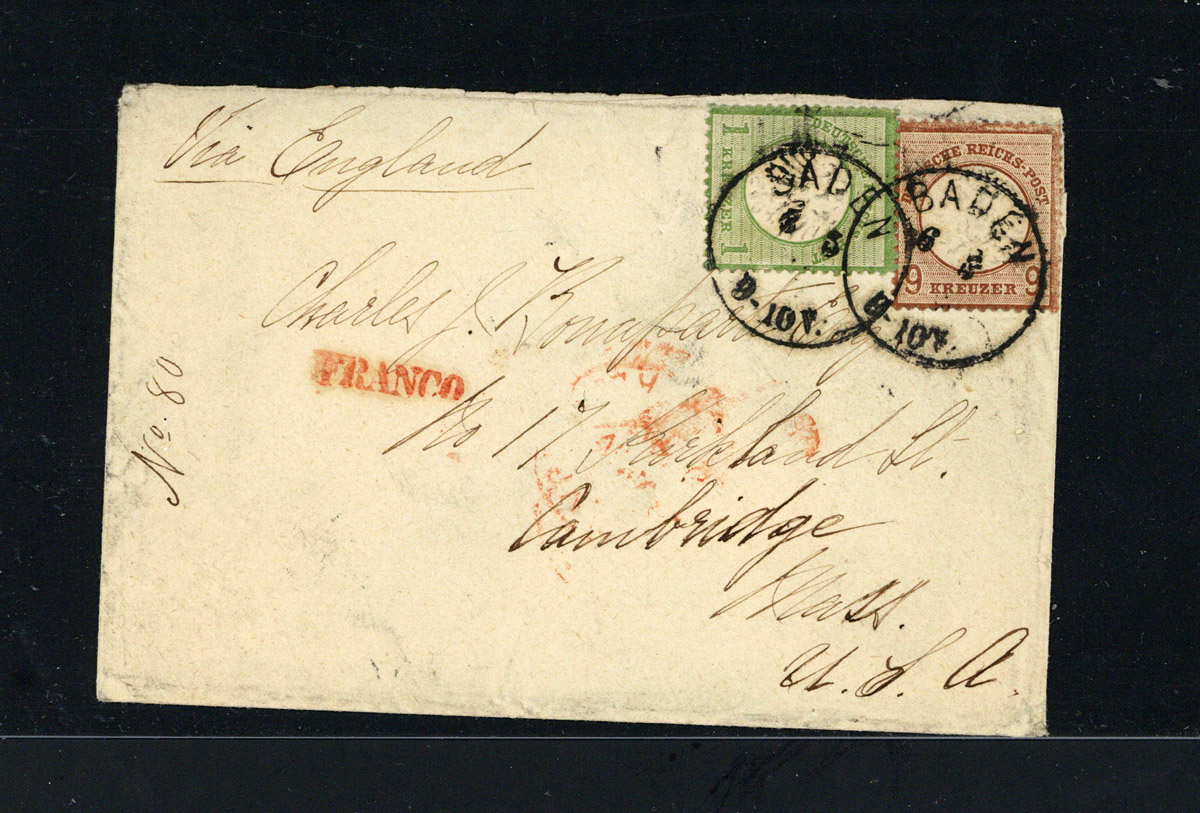 Via England
1 KREUZER 1
DEUTSCHE REICHS-POST
9 KREUZER 9
BADEN
6 5
9-10V.
BADEN
6 5
9-10V.
Charles J. Bonaparte Esq
FRANCO
No 17 Kirkland St.
No. 80
Cambridge
Mass.
U. S. A.